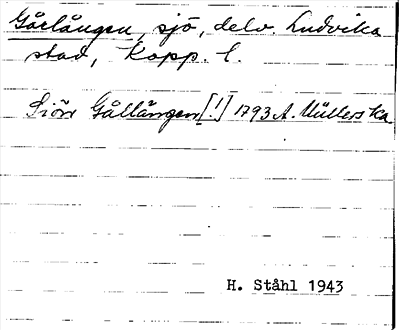 Gårlången, sjö, delv. Ludvika
stad, Kopp. l.
Siön Gållången [!] 1793 A. Müllers ka
H. Ståhl 1943